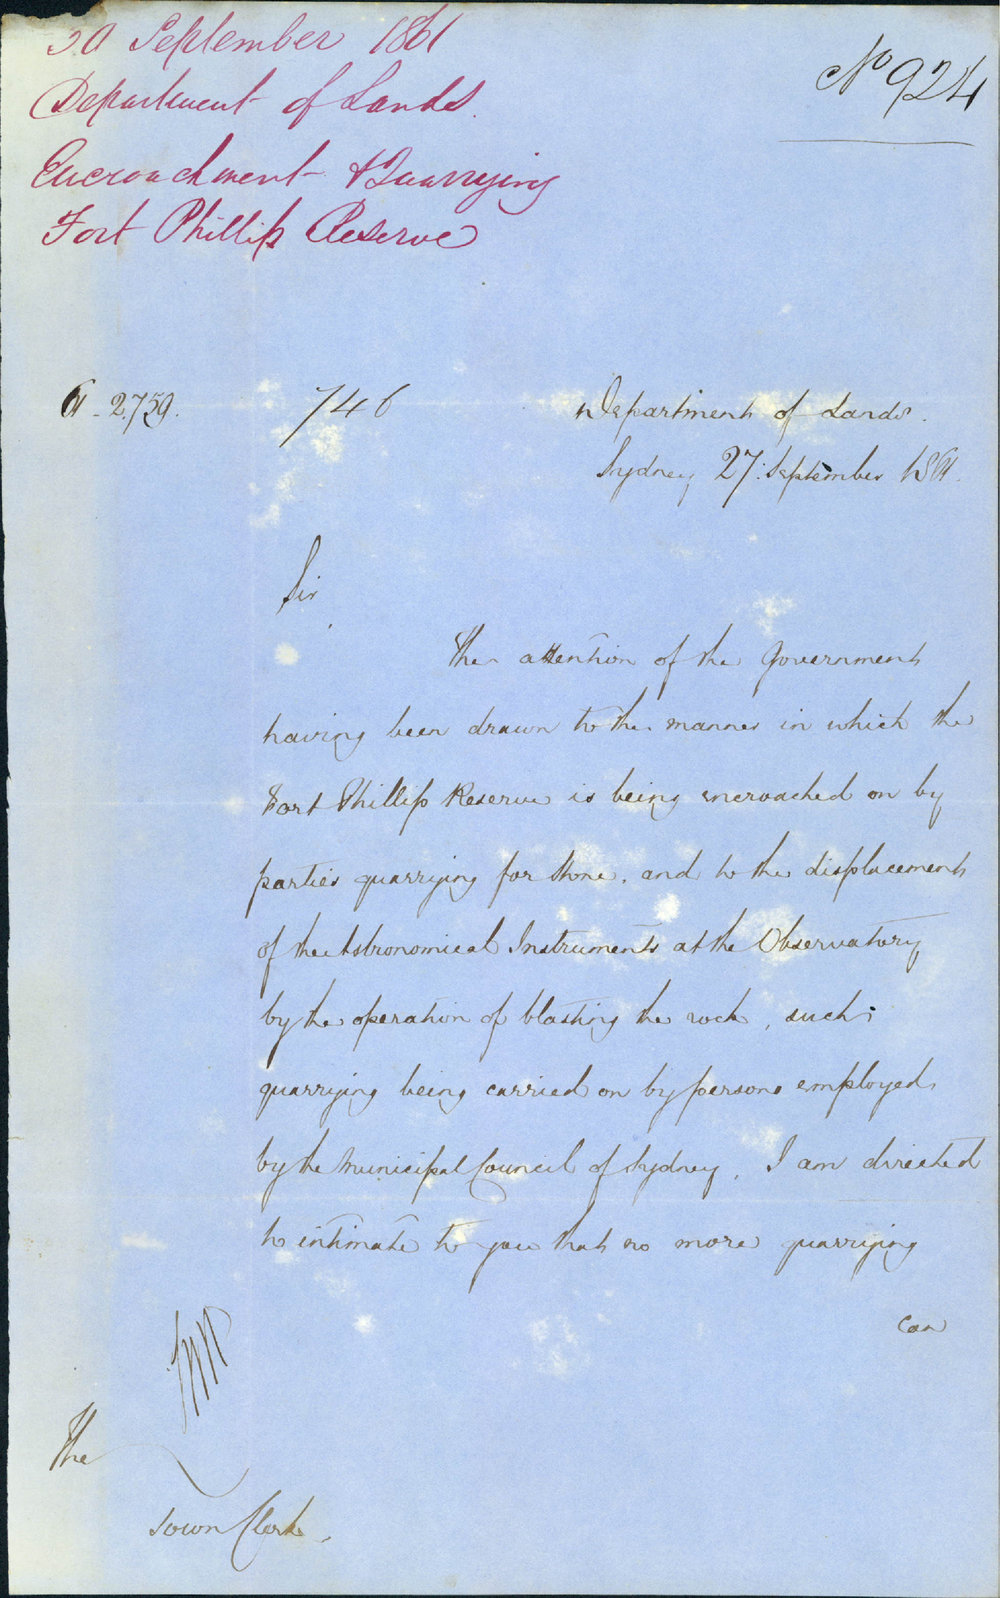 30 September 1861
Department of Lands.
Encroachment & Quarrying
Fort Phillip Reserve
No 924
61-2759.
746
Department of Lands.
Sydney 27 September 1861.
Sir
The attention of the Government
having been drawn to the manner in which the
Fort Phillip Reserve is being encroached on by
parties quarrying for stone, and to the displacement
of the Astronomical Instruments at the Observatory
by the operation of blasting the rock, such
quarrying being carried on by persons employed
by the Municipal Council of Sydney, I am directed
to intimate to you that no more quarrying
can
The
Town Clerk.